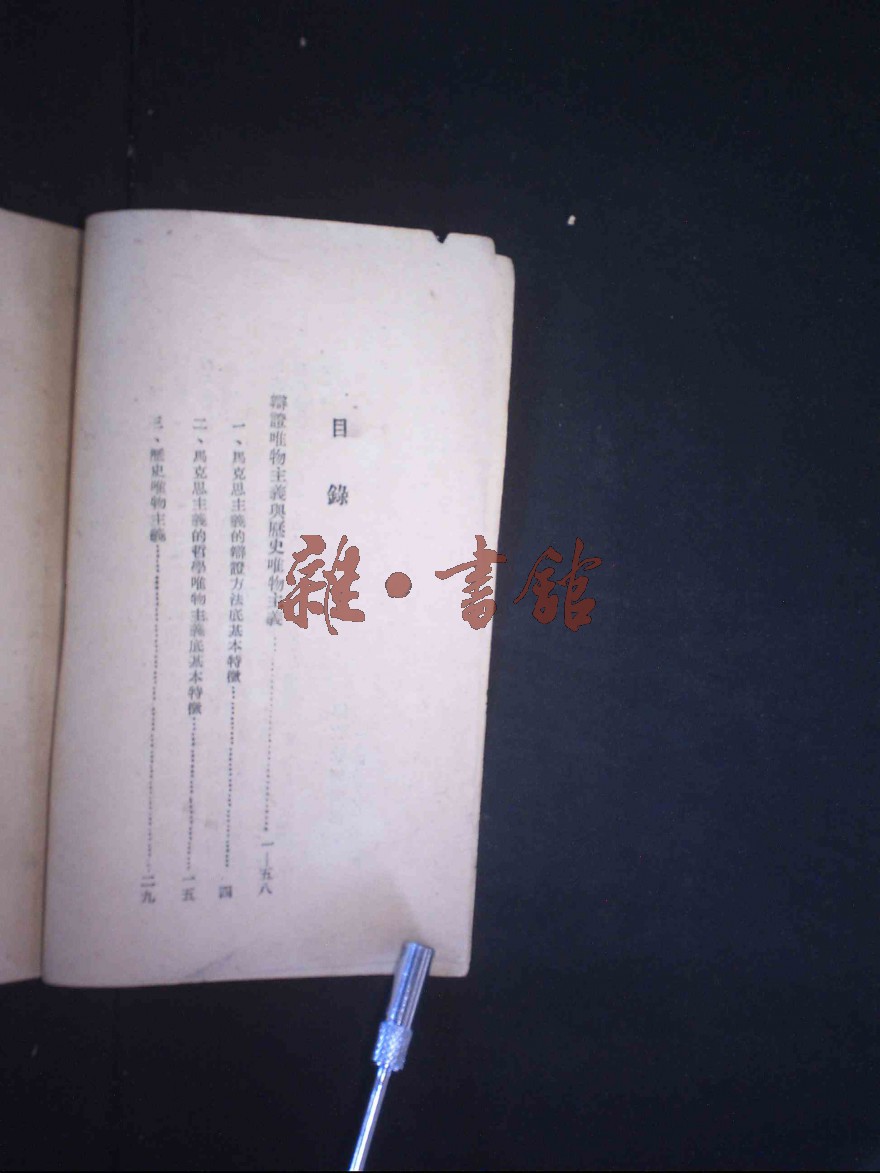 目錄
辯證唯物主義與歷史唯物主義……一—五八
一、馬克思主義的辯證方法底基本特徵……四
二、馬克思主義的哲學唯物主義底基本特徵……一五
三、歷史唯物主義……二九
雜·書館